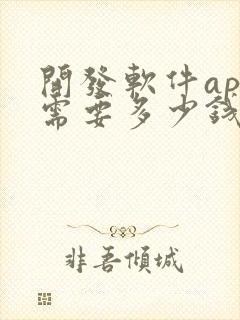 開發軟件ap
需要多少錢
非吾傾城